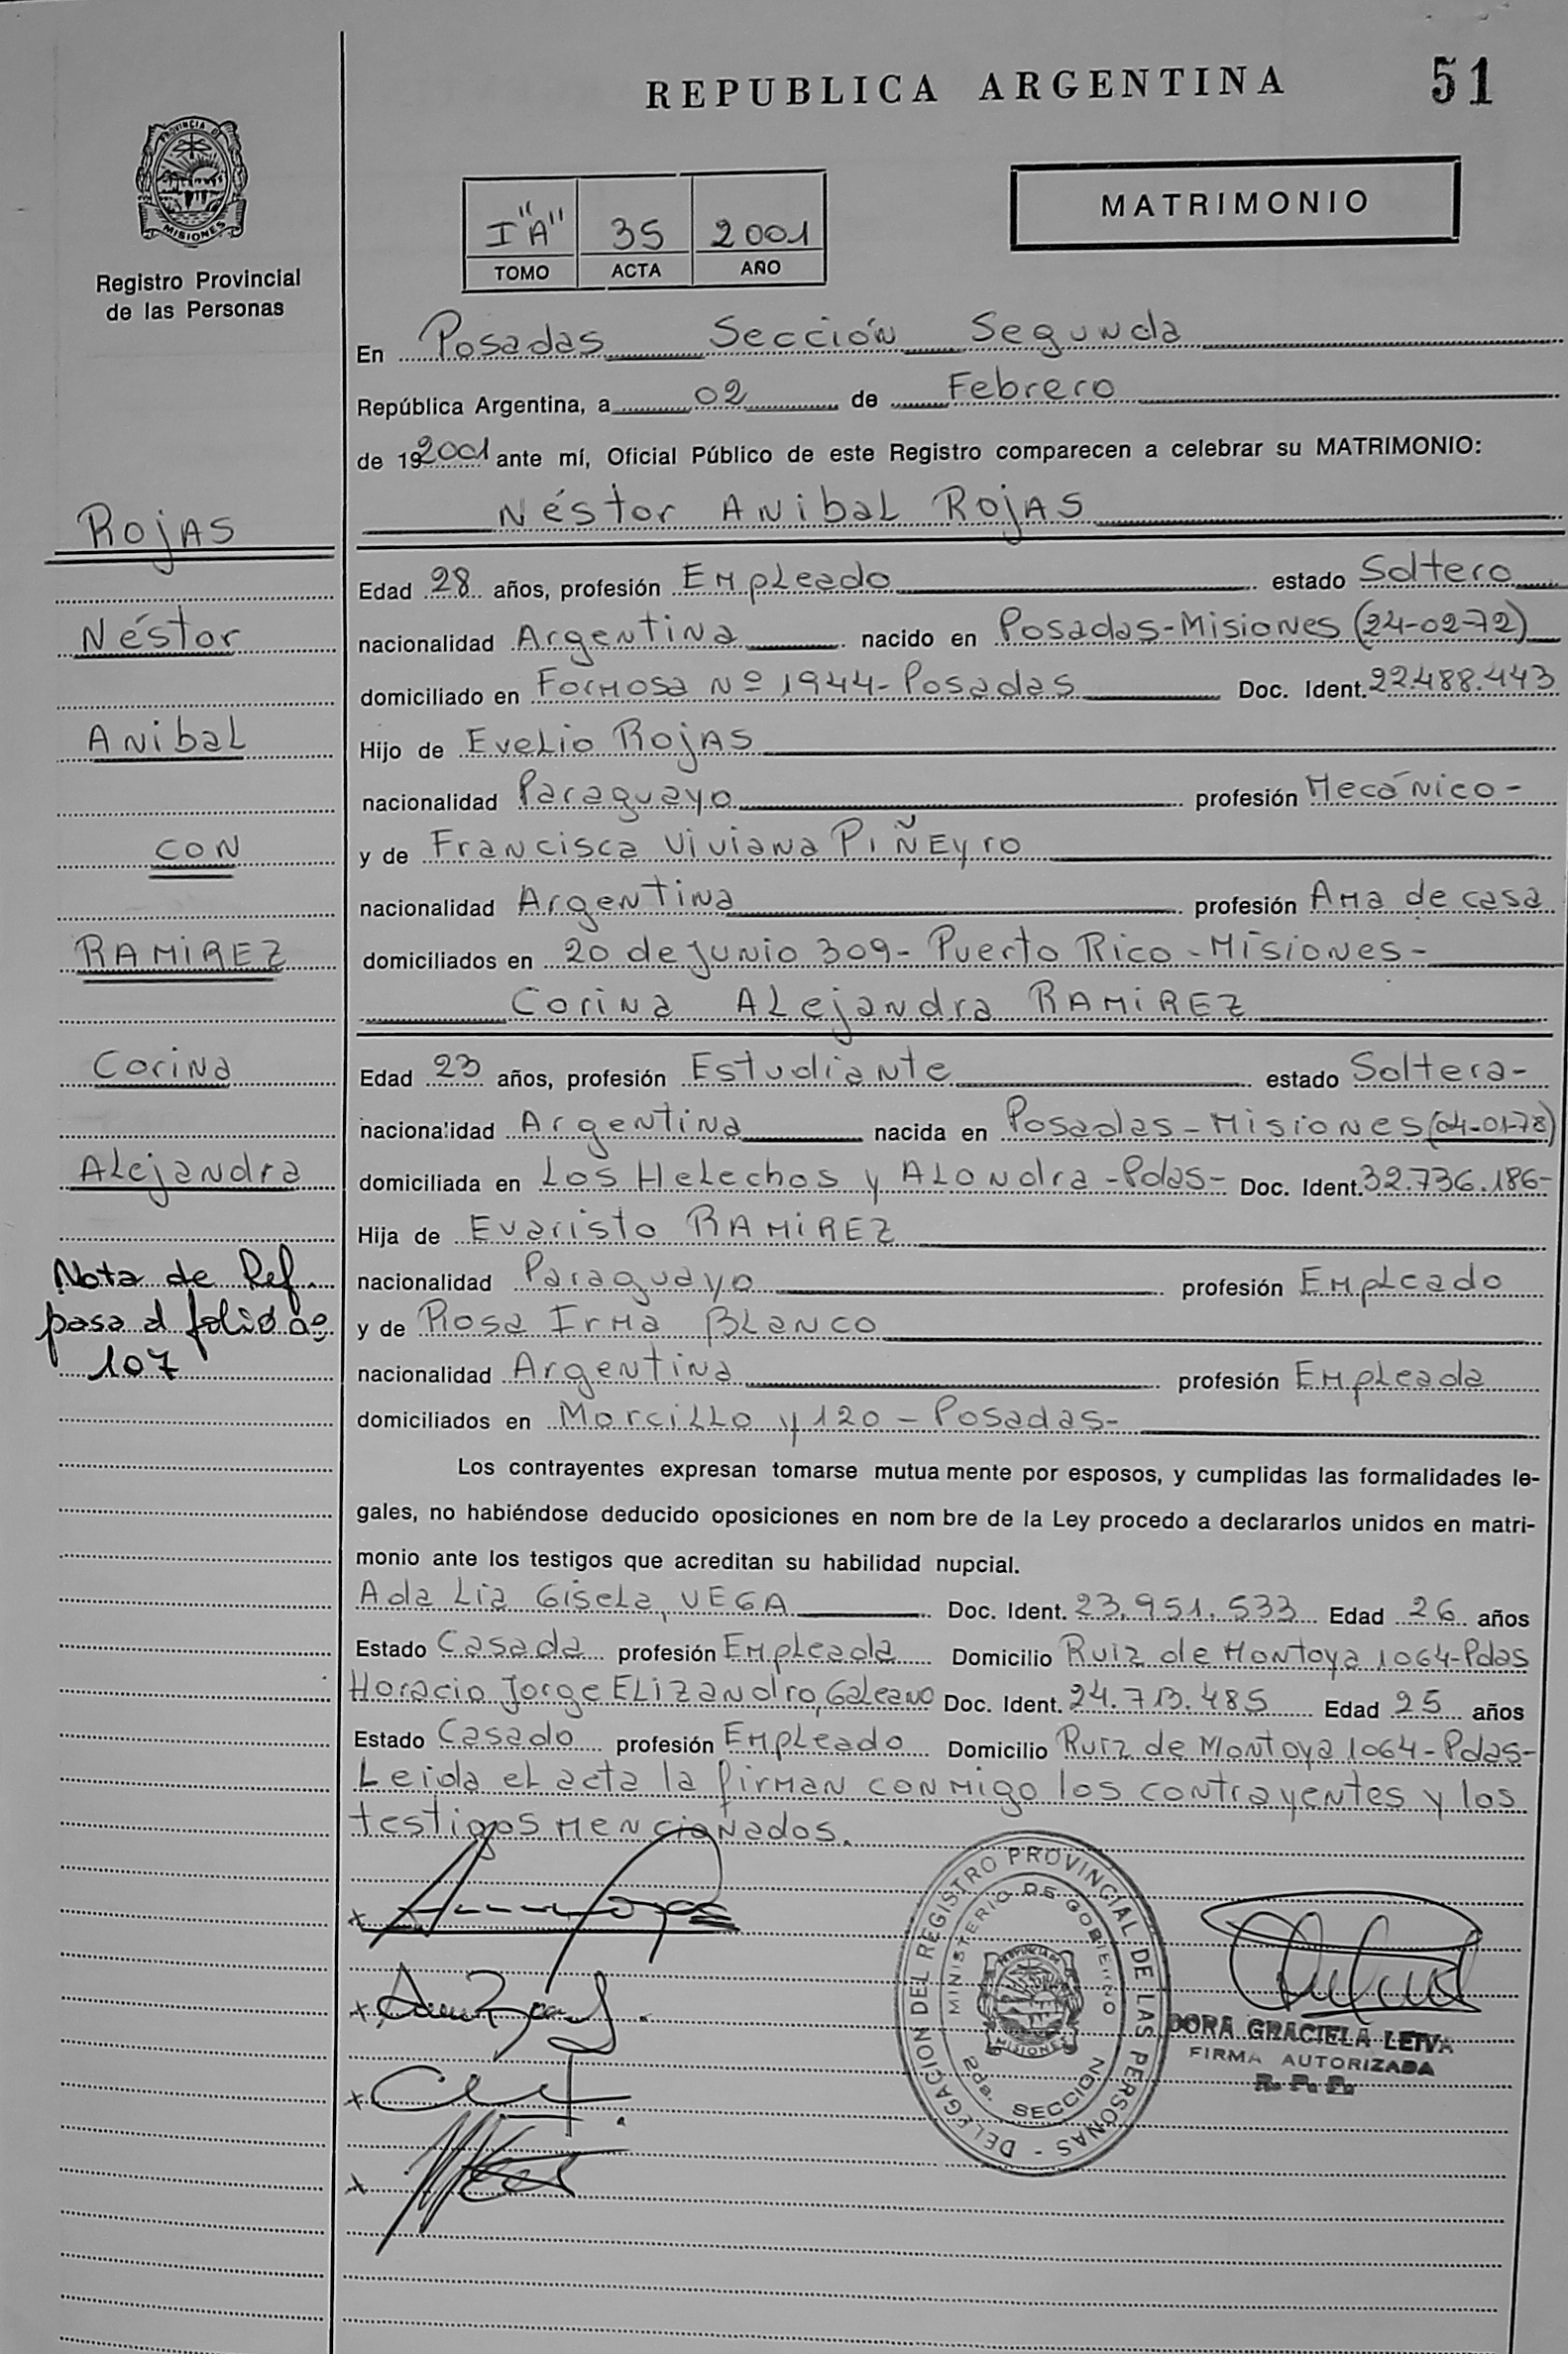 REPUBLICA ARGENTINA 51
PROVINCIA DE
MISIONES
Registro Provincial
de las Personas
I "A" 35 2001
TOMO ACTA AÑO
MATRIMONIO
En Posadas Sección Segunda
República Argentina, a 02 de Febrero
de 19 2001 ante mí, Oficial Público de este Registro comparecen a celebrar su MATRIMONIO:
Néstor Anibal Rojas
Edad 28 años, profesión Empleado estado Soltero
nacionalidad Argentina nacido en Posadas-Misiones (24-02-72)
domiciliado en Formosa Nº 1944-Posadas Doc. Ident. 22.488.443
Hijo de Evelio Rojas
nacionalidad Paraguayo profesión Mecánico-
y de Francisca Viviana Piñeyro
nacionalidad Argentina profesión Ama de casa
domiciliados en 20 de junio 309- Puerto Rico-Misiones-
Corina Alejandra RAMIREZ
Edad 23 años, profesión Estudiante estado Soltera-
nacionalidad Argentina nacida en Posadas-Misiones (04-01-78)
domiciliada en Los Helechos y Alondra-Pdas- Doc. Ident. 32.736.186-
Hija de Evaristo RAMIREZ
nacionalidad Paraguayo profesión Empleado
y de Rosa Irma Blanco
nacionalidad Argentina profesión Empleada
domiciliados en Morcillo y 120 - Posadas-
Los contrayentes expresan tomarse mutua mente por esposos, y cumplidas las formalidades le-
gales, no habiéndose deducido oposiciones en nom bre de la Ley procedo a declararlos unidos en matri-
monio ante los testigos que acreditan su habilidad nupcial.
Ada Lia Gisela, VEGA Doc. Ident. 23.951.533 Edad 26 años
Estado Casada profesión Empleada Domicilio Ruiz de Montoya 1064-Pdas
Horacio Jorge Elizandro, Galeano Doc. Ident. 24.713.485 Edad 25 años
Estado Casado profesión Empleado Domicilio Ruiz de Montoya 1064-Pdas-
Leida el acta la firman conmigo los contrayentes y los
testigos mencionados.
Rojas
Néstor
Anibal
con
RAMIREZ
Corina
Alejandra
Nota de Ref.
pasa al folio nº
107
DELEGACION DEL REGISTRO PROVINCIAL DE LAS PERSONAS -
MINISTERIO DE GOBIERNO
PROVINCIA DE
MISIONES
2da. SECCION
DORA GRACIELA LEIVA
FIRMA AUTORIZADA
R. P. P.